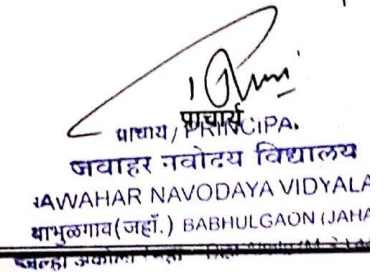 प्राचार्य
प्राचार्य / PRINCIPA
जवाहर नवोदय विद्यालय
JAWAHAR NAVODAYA VIDYALA
बाभुळगाव (जहाँ.) BABHULGAON (JAHA